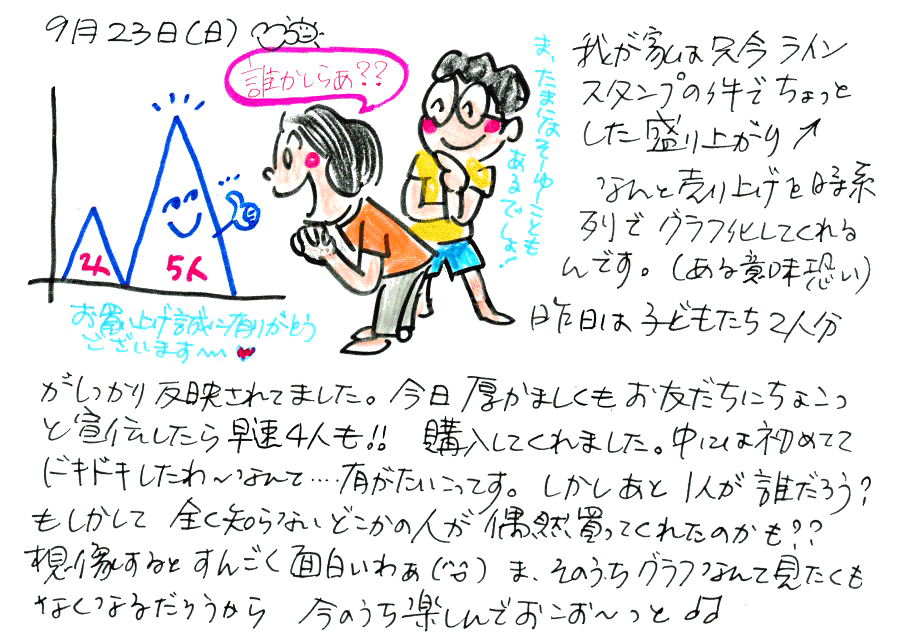 9月23日(日)
誰かしらぁ??
ま、たまにはそーゆーことも
あるでしょ!
2人
5人
お買い上げ誠に有りがとう
ございます〜♥
我が家は只今ライン
スタンプの件でちょっと
した盛り上がり↗
なんと売り上げを時系
列でグラフ化してくれる
んです。(ある意味恐い)
昨日は子どもたち2人分
がしっかり反映されてました。今日厚かましくもお友だちにちょこっ
と宣伝したら早速4人も!! 購入してくれました。中には初めてで
ドキドキしたわ〜なんて…‥有がたいこってす。しかしあと1人が誰だろう?
もしかして全く知らないどこかの人が偶然買ってくれたのかも??
想像するとすんごく面白いわぁ(^^) ま、そのうちグラフなんて見たくも
なくなるだろうから 今のうち楽しんでおこお〜っと♫